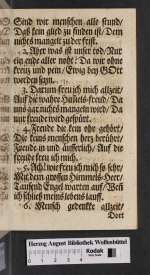 Sind wir menschen alle stund/
Daß kein glied zu finden ist/ Dem
nichts mangelt zu der frist.
2. Aber was ist unser not? Nur
ein ende aller noht! Da wir ohne
kreuz und pein/ Ewig bey GOtt
werden seyn.
3. Darum freu ich mich allzeit/
Auf die wahre Himels-freud/ Da
uns gar nichts mangeln wird/ Da
nur freude wird gespürt.
4. Freude die kein ohr gehört/
Die keins menschen herz berührt/
Freude in und äusserlich/ Auf die
freude freu ich mich.
5. Ach! wie freu ich mich so sehr
Mit dem grossen Himmels-Heer/
Tausend Engel warten auf/ Weñ
ich schließ meins lebens lauf.
6. Mensch gedenke allzeit/
Dort
Herzog August Bibliothek Wolfenbüttel
Kodak